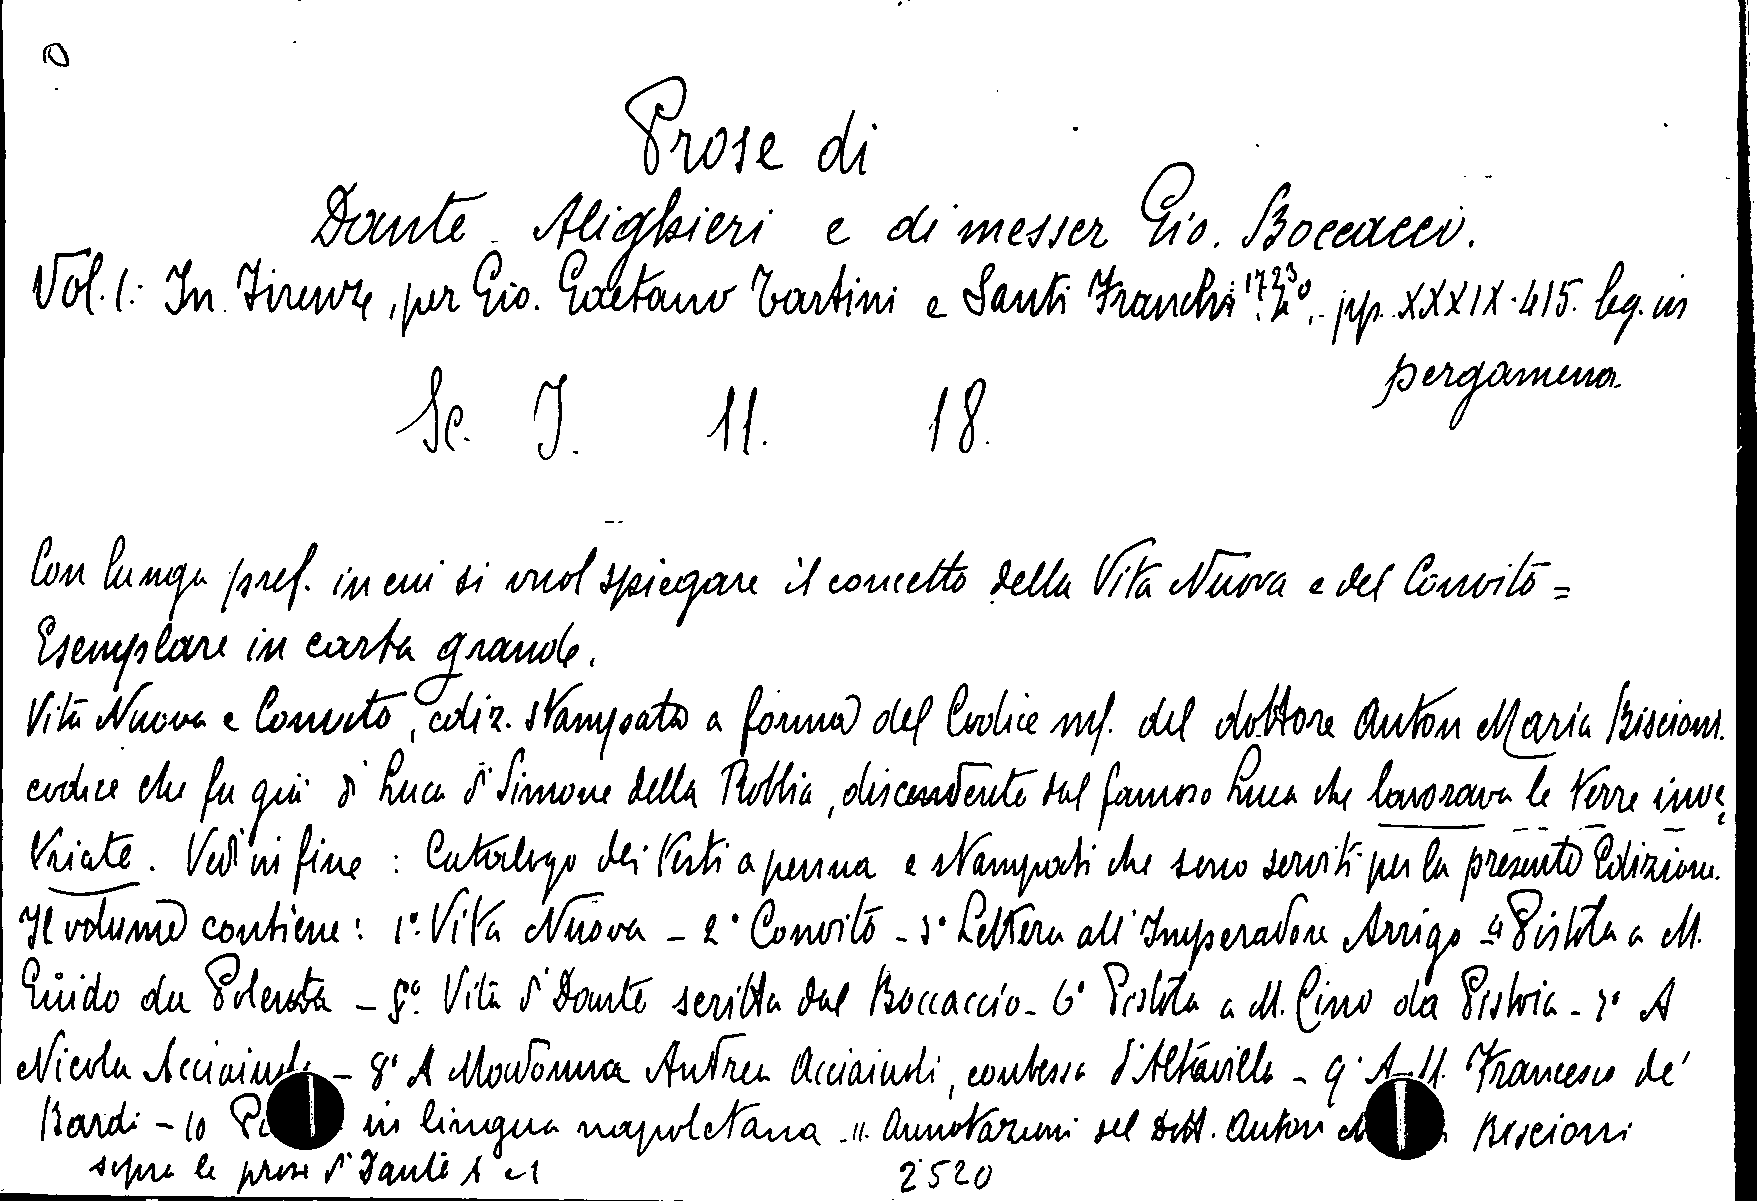 Prose di
Dante Alighieri e di messer Gio. Boccacci.
Vol. 1: In Firenze, per Gio. Gaetano Tartini e Santi Franchi 1723 pp. XXXIX-415. leg. in
pergamena.
Sc. I. 11. 18.
Con lunga pref. in cui si vuol spiegare il concetto della Vita Nuova e del Convito =
Esemplare in carta grande.
Vita Nuova e Convito, ediz. stampata a forma del Codice ms. del dottore Anton Maria Biscioni.
codice che fu già di Luca di Simone della Robbia, discendente dal famoso Luca che lavorava le terre inve=
triate. Vedi in fine: Catalogo dei testi a penna e stampati che sono serviti per la presente Edizione.
Il volume contiene: 1° Vita Nuova - 2° Convito - 3° Lettera all'Imperadore Arrigo - 4° Pistola a M.
Guido da Polenta - 5°. Vita di Dante scritta dal Boccaccio - 6° Pistola a M. Cino da Pistoia - 7° A
Nicola Acciaiuoli - 8° A Madonna Andrea Acciaiuoli, contessa d'Altavilla - 9° A M. Francesco de'
Bardi - 10 in lingua napoletana - 11. Annotazioni del Dott. Anton Biscioni
sopra le prose di Dante
2520